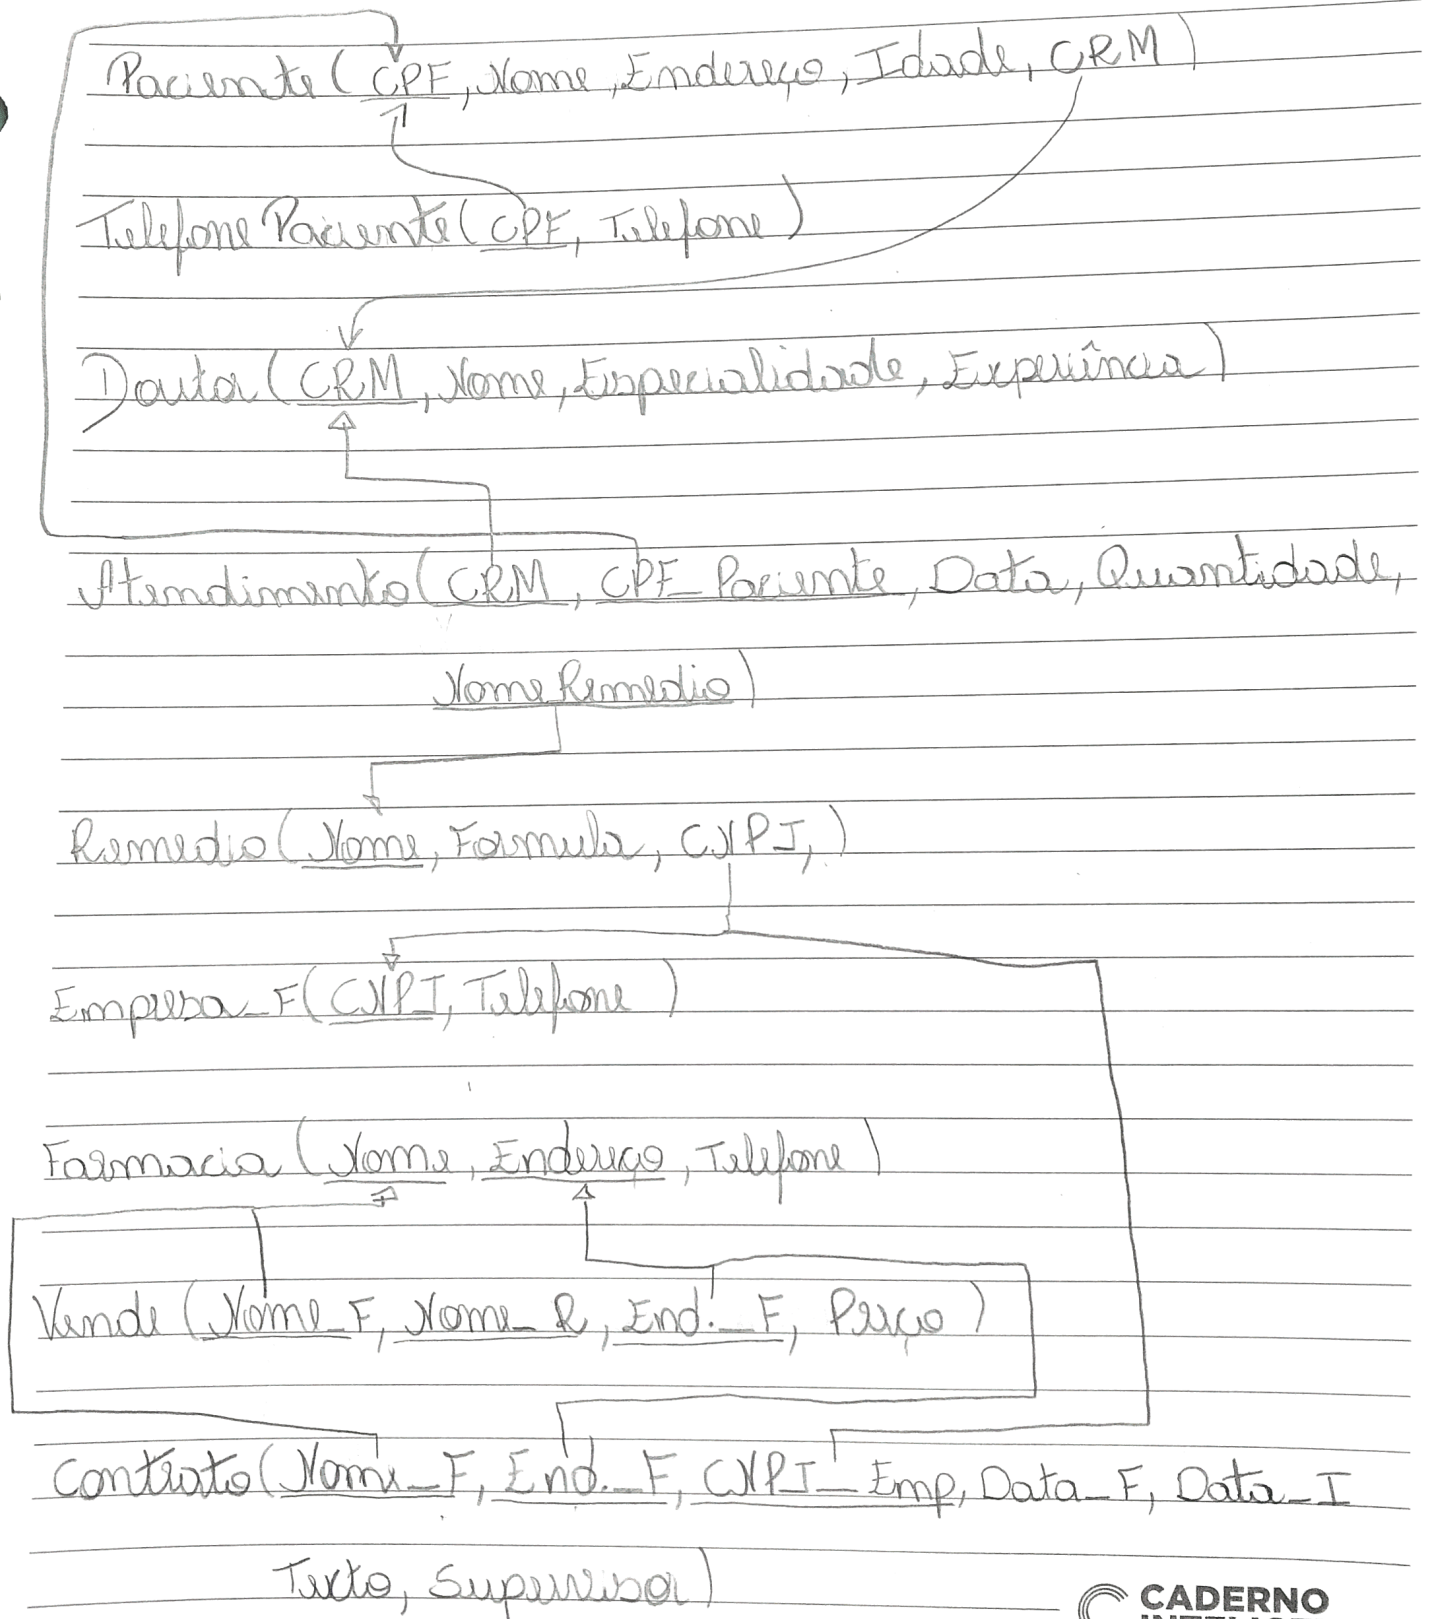 Paciente (CPF, Nome, Endereço, Idade, CRM)
Telefone Paciente (CPF, Telefone)
Doutor (CRM, Nome, Especialidade, Experiência)
Atendimento (CRM, CPF_Paciente, Data, Quantidade,
Nome Remedio)
Remedio (Nome, Formula, CNPJ,)
Empresa_F (CNPJ, Telefone)
Farmacia (Nome, Endereço, Telefone)
Vende (Nome_F, Nome_R, End._F, Preço)
Contrato (Nome_F, End._F, CNPJ_Emp, Data_F, Data_I
Texto, Supervisor)
CADERNO